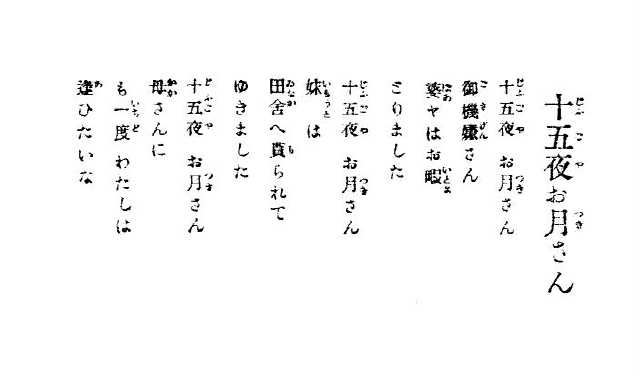 十五夜お月さん
十五夜 お月さん
御機嫌さん
婆ヤはお暇
とりました
十五夜 お月さん
妹 は
田舎へ貰られて
ゆきました
十五夜 お月さん
母さんに
も一度 わたしは
逢ひたいな